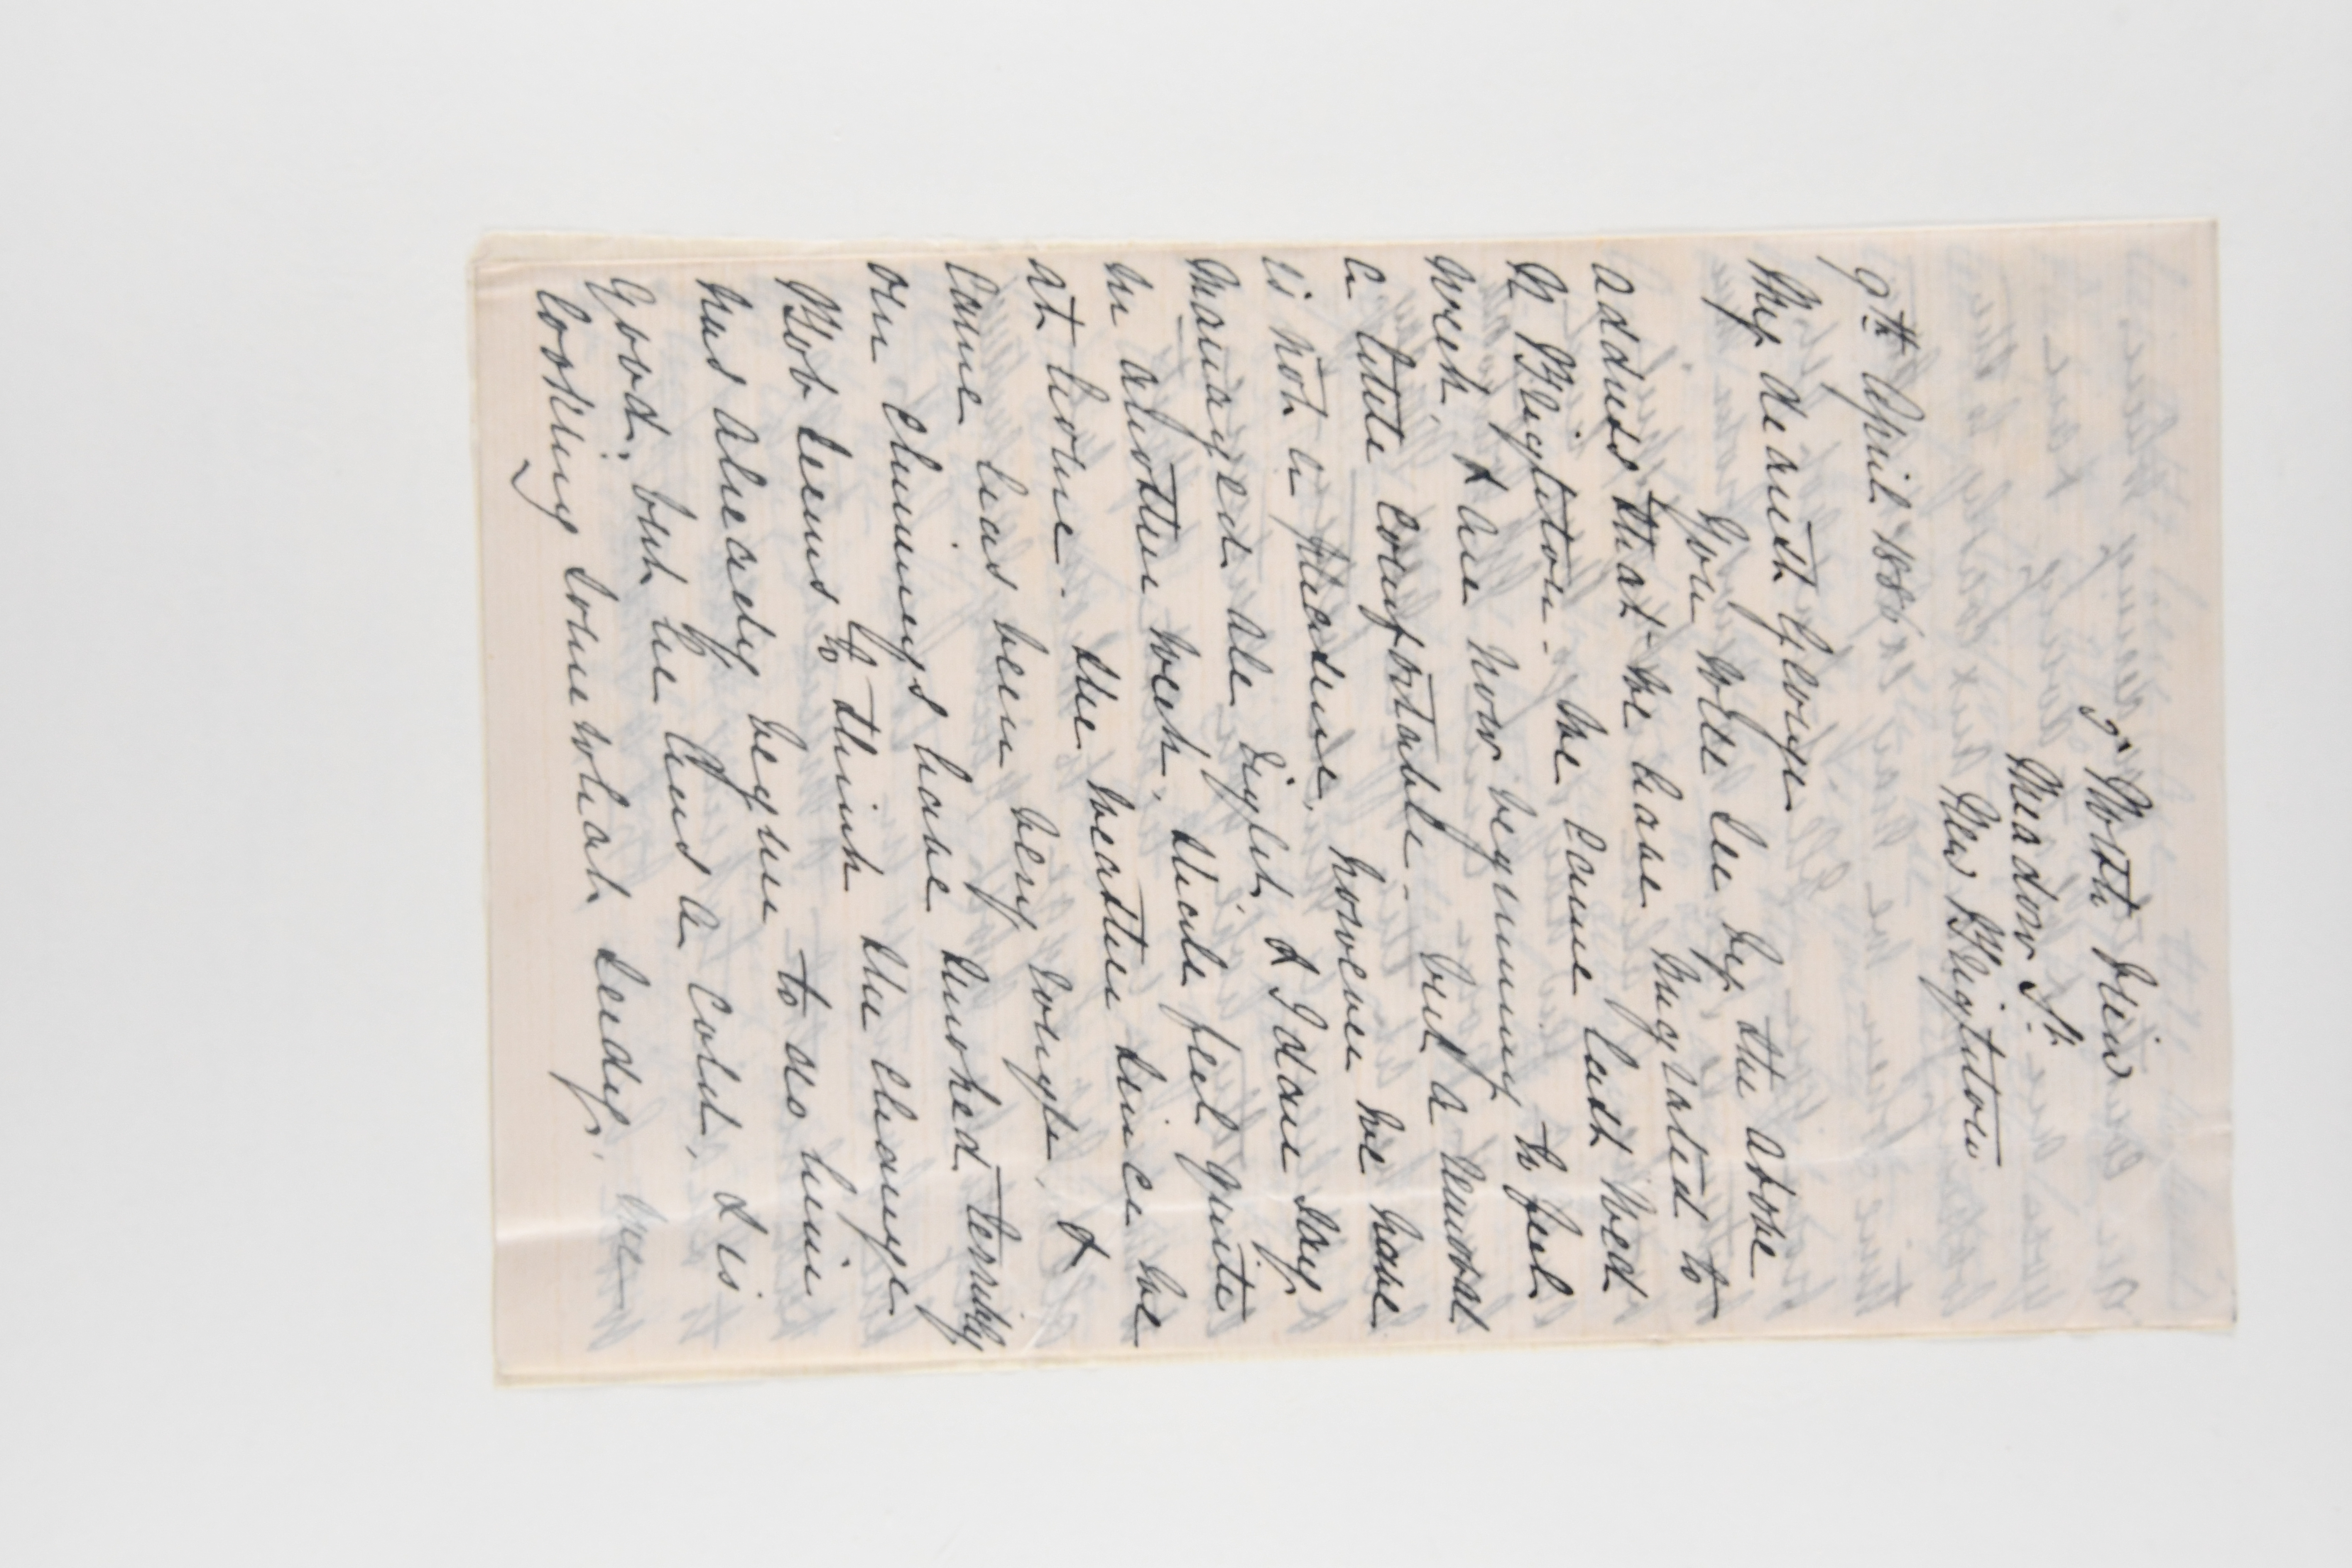 9 North View
Meadow St.
New Brighton
9th April 188
My dearest George
You will see by the above
address that we have migrated to
N Brighton - We came last Wed
week, & are now beginning to feel
a little comfortable - but a removal
is not a pleasure, however we have
managed all right, & I dare say
in another week, shall feel quite
at home. The weather since we
came has been very rough, &
our chimneys have smoked terribly
Bob seems to think the change
has already begun to do him
good, but he has a cold, & is
looking somewhat seedy, We